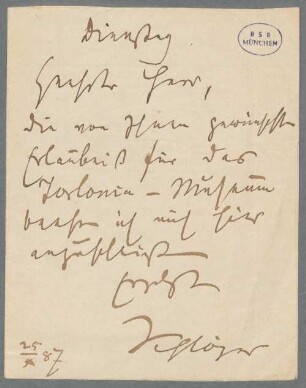 Dienstag
BSB
MÜNCHEN
Geehrter Herr,
die von Ihnen gewünschte
Erlaubniß für das
Torlonia - Museum
beehre ich mich hier
anzuschließen
Ergebenst
Schlözer
25/4 87